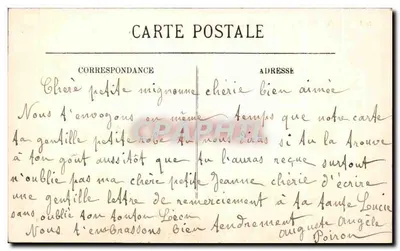 CARTE POSTALE
CORRESPONDANCE ADRESSE
Chère petite mignonne chérie bien aimée
Nous t'envoyons en même temps que notre carte
ta gentille petite robe tu nous diras si tu la trouve
à ton goût aussitôt que tu l'auras reçue surtout
n'oublie pas ma chère petite Jeanne chérie d'écrire
une gentille lettre de remerciement à ta tante Lucie
sans oublié ton tonton Léon
Nous t'embrassons bien tendrement Auguste Angèle
Poiron